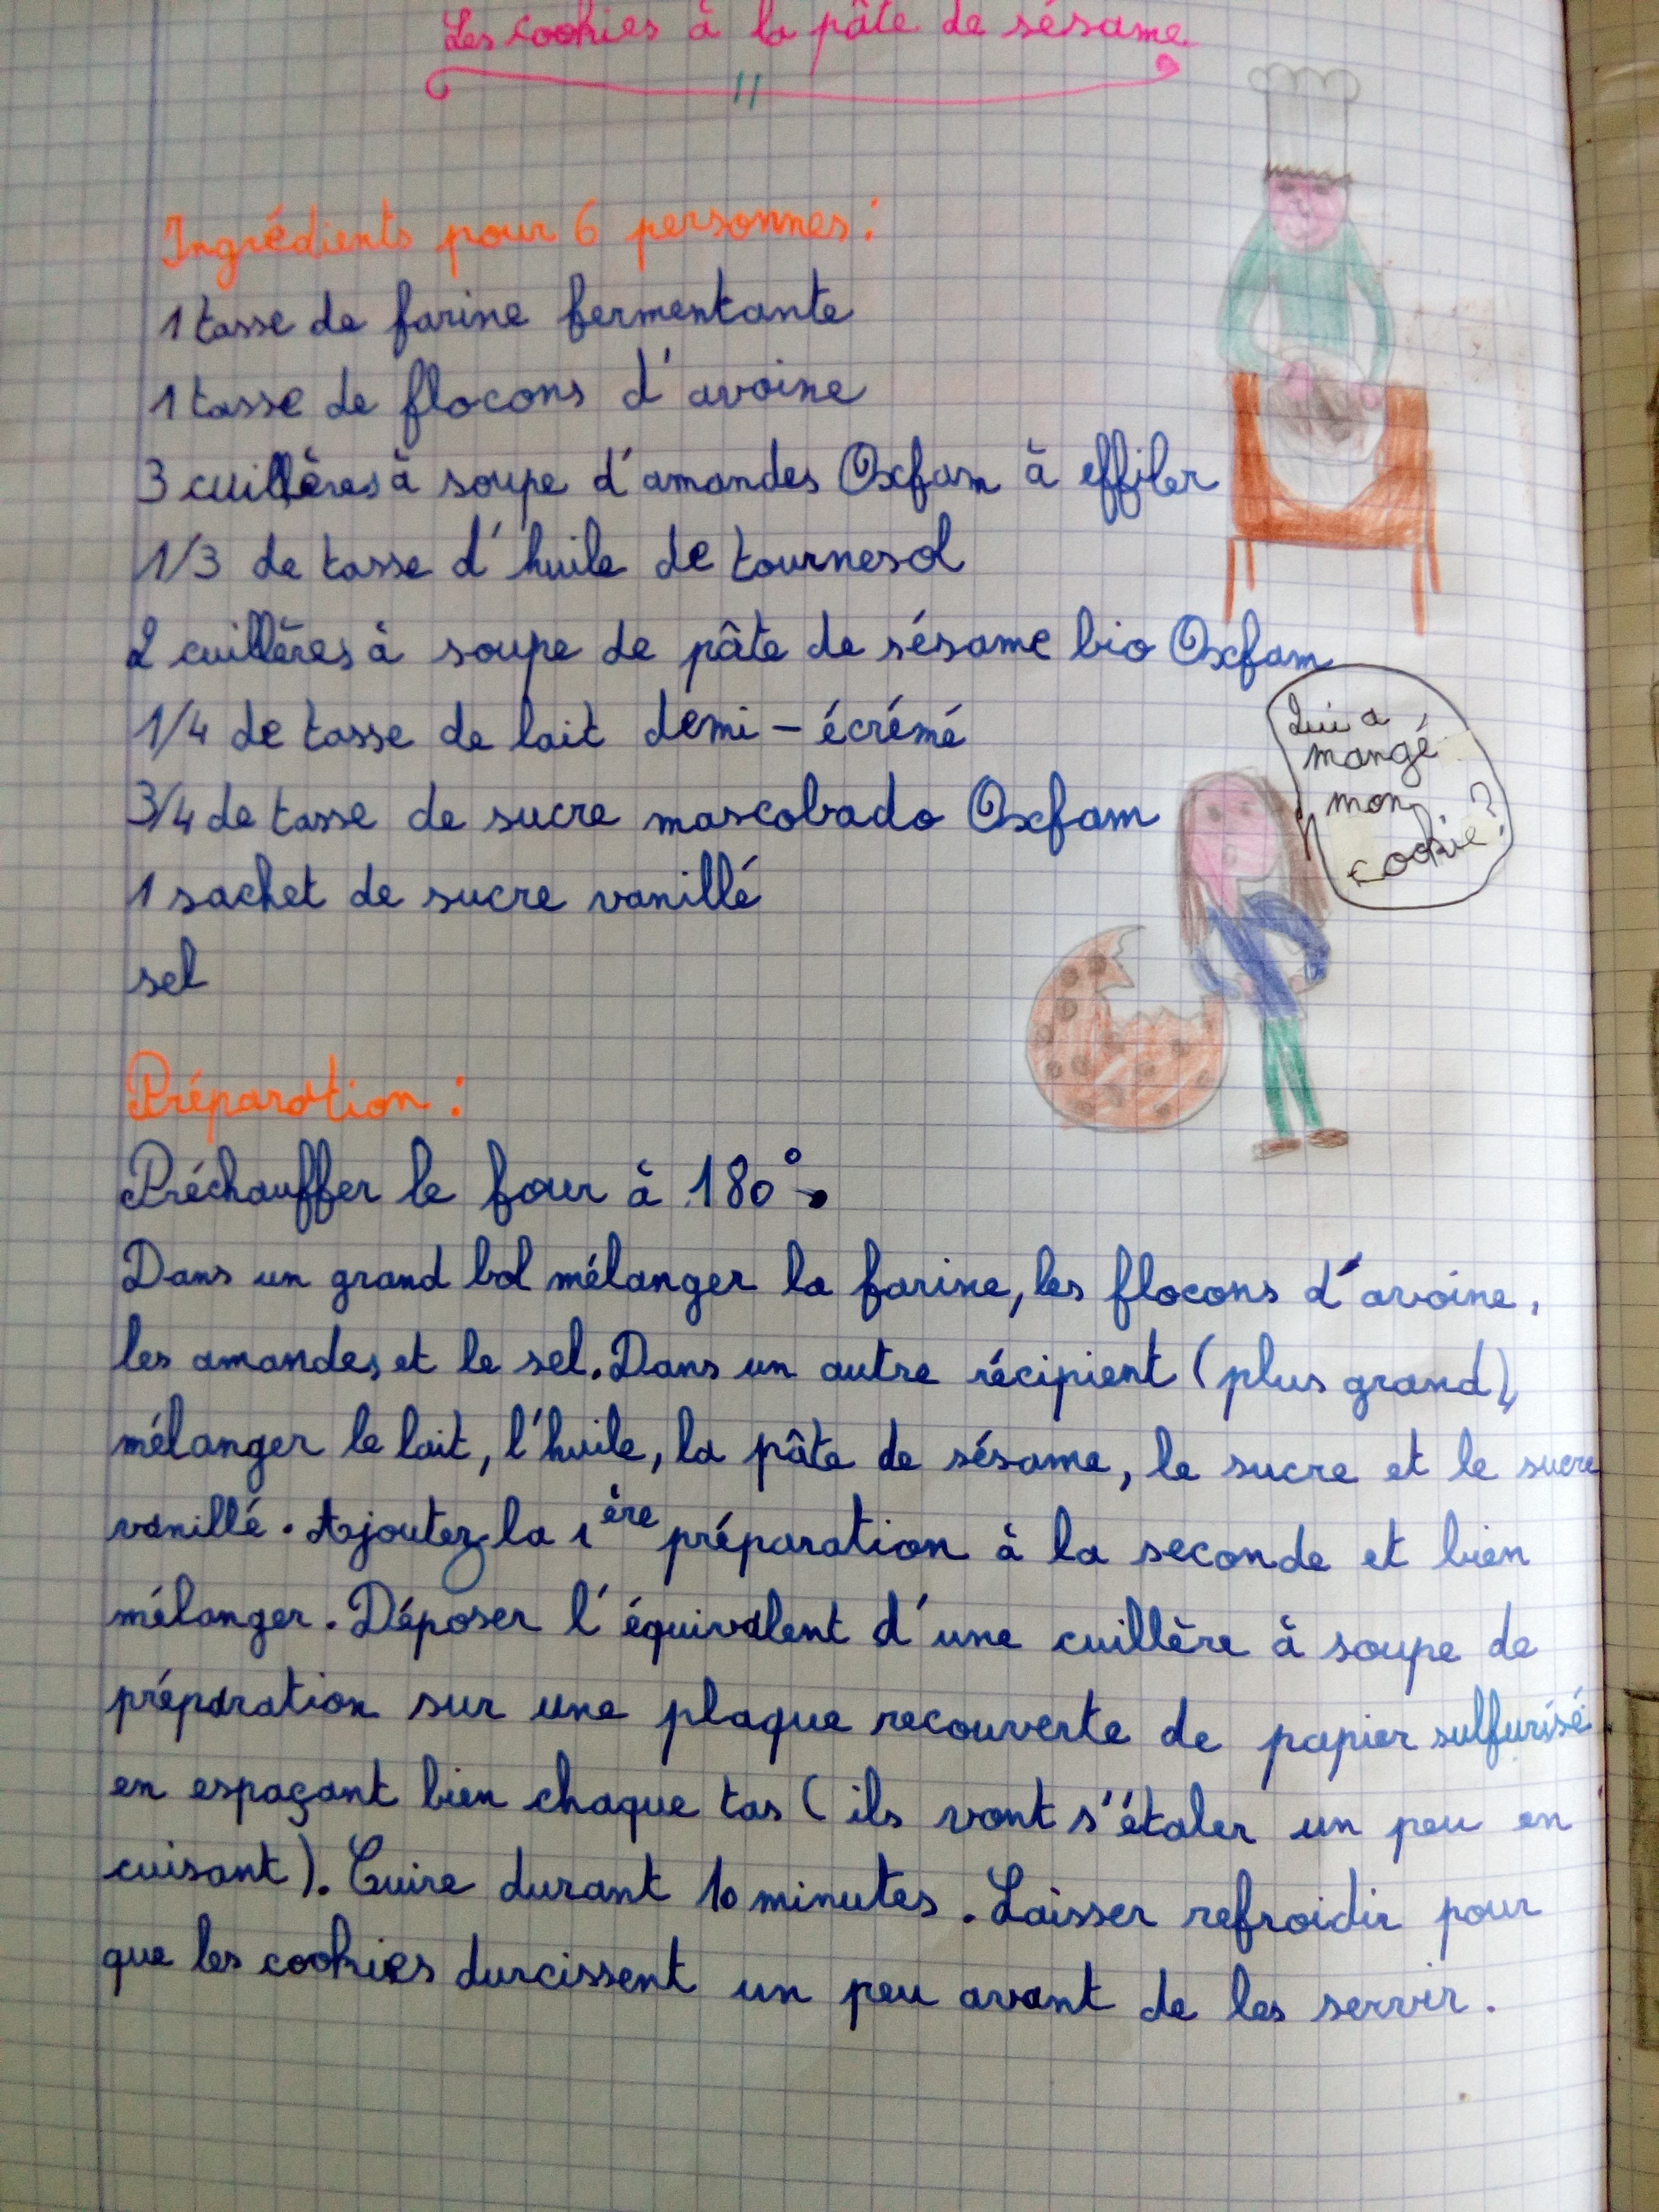 Les cookies à la pâte de sésame
Ingrédients pour 6 personnes :
1 tasse de farine fermentante
1 tasse de flocons d'avoine
3 cuillères à soupe d'amandes Oxfam à effiler
1/3 de tasse d'huile de tournesol
2 cuillères à soupe de pâte de sésame bio Oxfam
1/4 de tasse de lait demi-écrémé
3/4 de tasse de sucre mascobado Oxfam
1 sachet de sucre vanillé
sel
Qui a
mangé
mon
cookie ?
Préparation :
Préchauffer le four à 180°.
Dans un grand bol mélanger la farine, les flocons d'avoine,
les amandes et le sel. Dans un autre récipient (plus grand),
mélanger le lait, l'huile, la pâte de sésame, le sucre et le sucre
vanillé. Ajoutez la 1ère préparation à la seconde et bien
mélanger. Déposer l'équivalent d'une cuillère à soupe de
préparation sur une plaque recouverte de papier sulfurisé
en espaçant bien chaque tas (ils vont s'étaler un peu en
cuisant). Cuire durant 10 minutes. Laisser refroidir pour
que les cookies durcissent un peu avant de les servir.